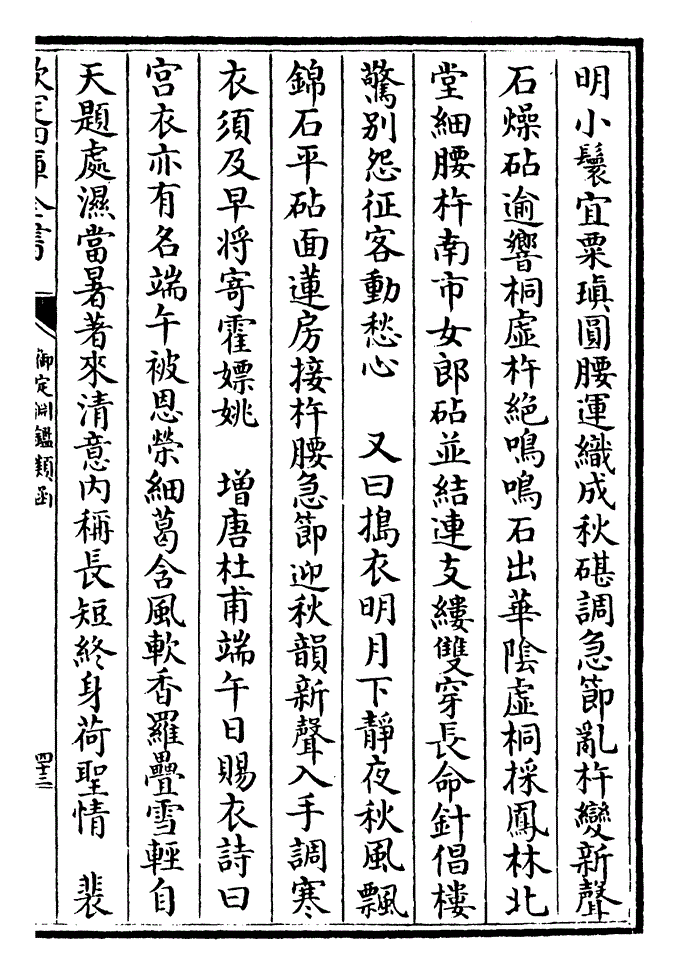 明小鬟宜粟瑱圓腰運織成秋碪調急節亂杵變新聲
石燥砧逾響桐虛杵絕鳴鳴石出華陰虛桐採鳳林北
堂細腰杵南市女郎砧並結連支縷雙穿長命針倡樓
驚別怨征客動愁心　又曰搗衣明月下靜夜秋風飄
錦石平砧面蓮房接杵腰急節迎秋韻新聲入手調寒
衣須及早將寄霍嫖姚　增唐杜甫端午日賜衣詩曰
宮衣亦有名端午被恩榮細葛含風軟香羅疊雪輕自
天題處濕當暑著來清意內稱長短終身荷聖情　裴
欽定四庫全書
御定淵鑑類函
四十三